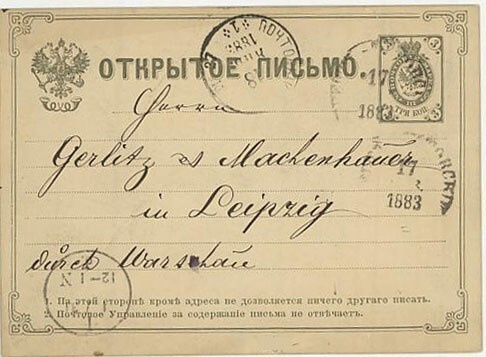 ОТКРЫТОЕ ПИСЬМО.
3 3
3 3
ТРИ КОП.
1
ПОЧТО
1883
8
17
1883
17
1883
Herrn
Gerlitz & Machenhauer
in Leipzig
durch Warschau
12-1 N
1. На этой сторонѣ кромѣ адреса не дозволяется ничего другаго писать.
2. Почтовое Управленіе за содержаніе письма не отвѣчаетъ.